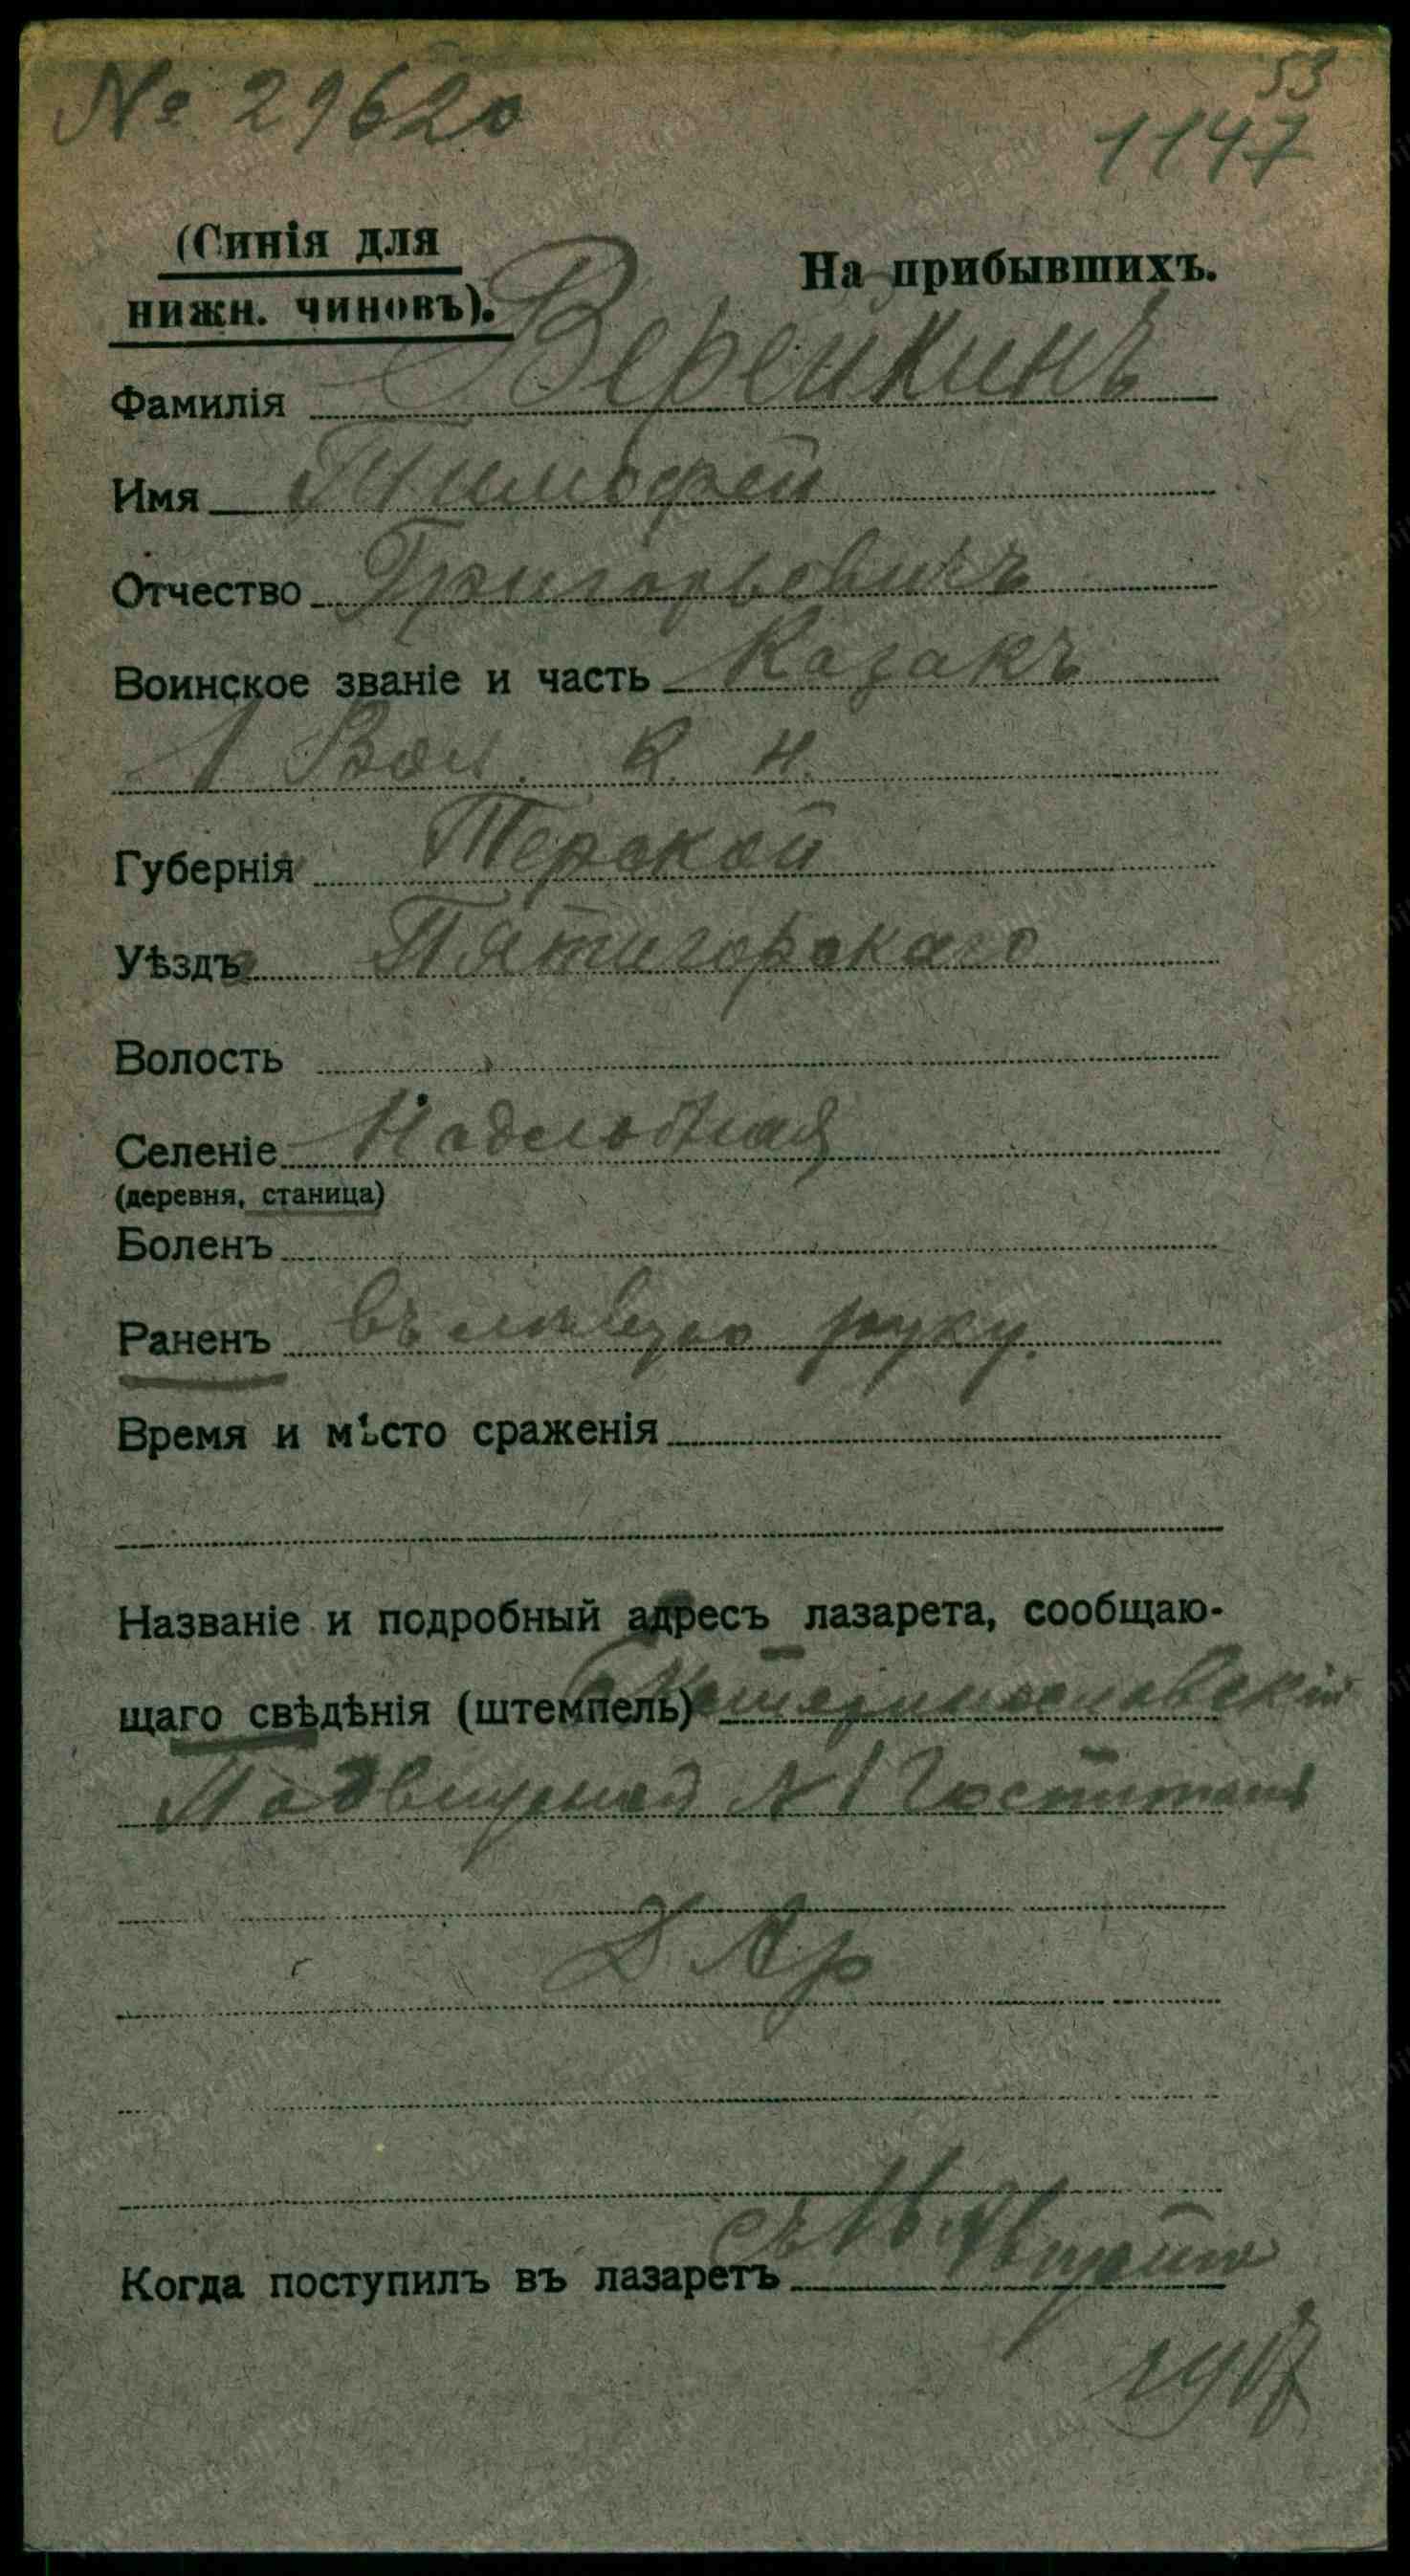 № 29620
53
1147
(Синія для
нижн. чиновъ).
На прибывшихъ.
Фамилія Верейкинъ
Имя Тимофей
Отчество Григорьевичъ
Воинское званіе и часть Казакъ
1 К.
Губернія Терской
Уѣздъ Пятигорскаго
Волость
Селеніе
(деревня, станица)
Боленъ
Раненъ въ лѣвую руку.
Время и мѣсто сраженія
Названіе и подробный адресъ лазарета, сообщаю-
щаго свѣдѣнія (штемпель)
Подвижной № 1 Госпиталь
Д Ар
Когда поступилъ въ лазаретъ съ 16
1917